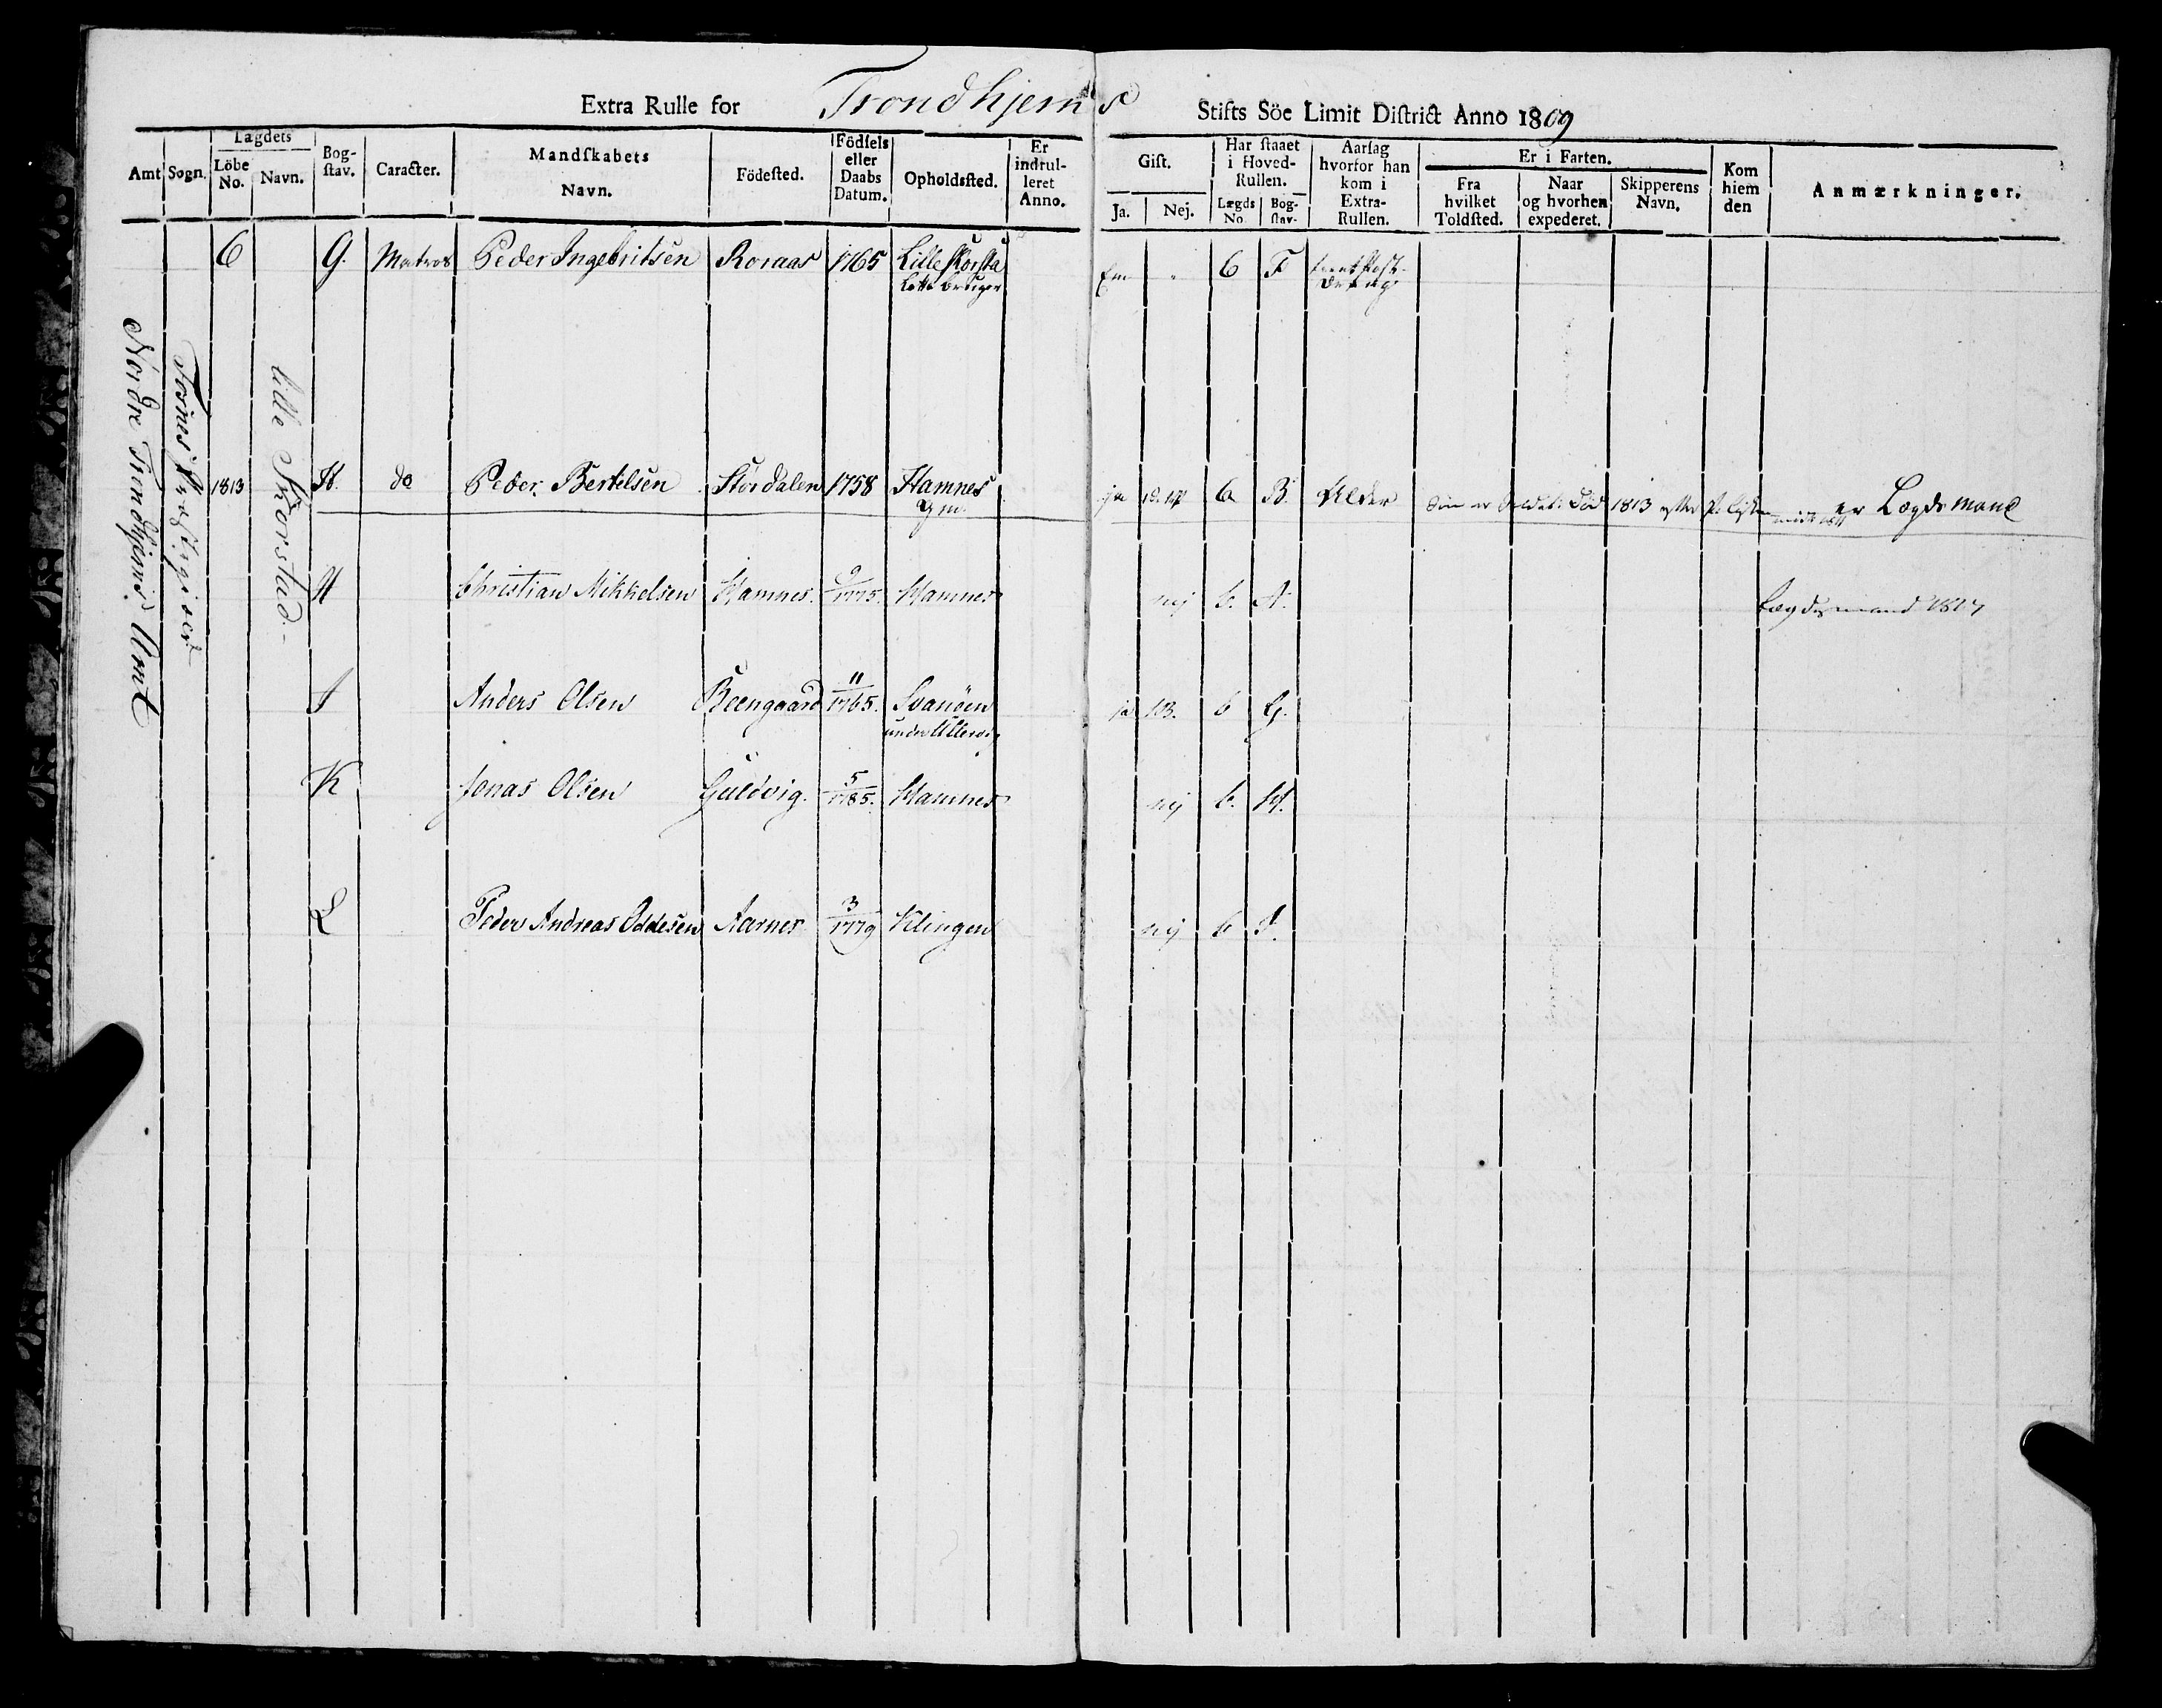 Extra Rulle for Trondhjems Stifts Söe Limit District Anno 1809
Amt Sogn. Lægdets Löbe No. Navn. Bog-stav. Caracter. Mandskabets Navn. Födested. Födsels eller Daabs Datum. Opholdssted. Er indrul-leret Anno. Gift. Ja. Nej. Har staaet i Hoved-Rullen. Lægds No. Bog-stav. Aarsag hvorfor han kom i Extra-Rullen. Er i Farten. Fra hvilket Toldsted. Naar og hvorhen expederet. Skipperens Navn. Kom hiem den Anmærkninger.
Nordre Trondhjems Amt
Fosnes Præstegield
lille Skorstad
6 G. Matros Peder Ingebritsen Roraas 1765 Lille Skorsta 6 F
1813 H. do Peder Bertelsen Stördalen 1758 Hamnes ja 6 B. Alder 1813 er Lægdsmand
gm.
H Christian Mikkelsen Hamnes. 9/1775. Hamnes nej 6. A. Lægdsmand 1817
I Anders Olsen Beengaard 11/1765. Svanöen ja 6 G.
under
K Jonas Olsen Guldvig. 5/1785. Hamnes nej 6. H.
L Peder Andreas Oddesen Aarnes 3/1779 Klingen nej 6 I.